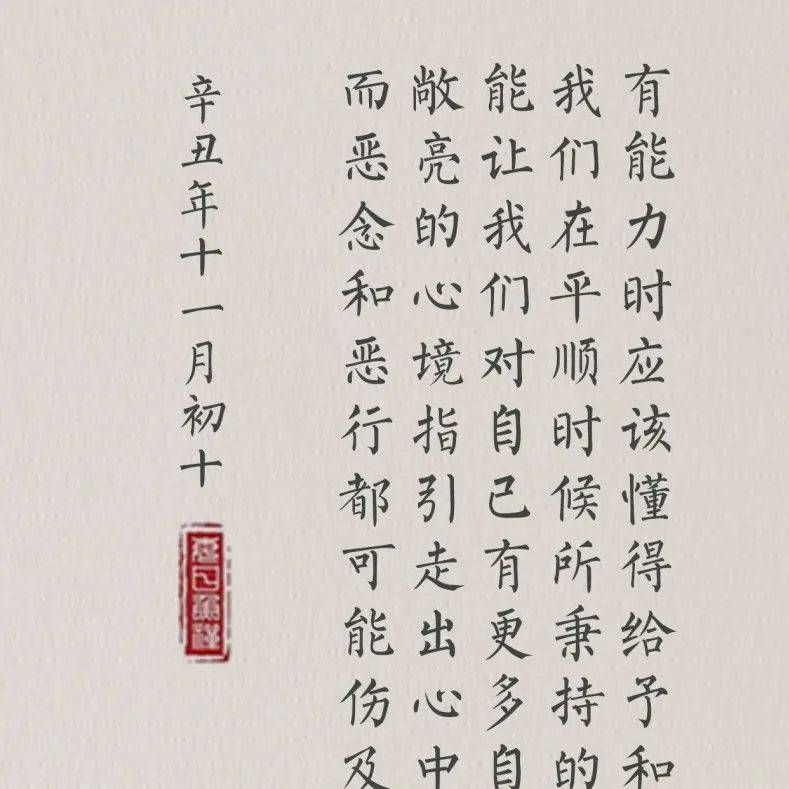 有能力时应该懂得给予和
我们在平顺时候所秉持的
能让我们对自己有更多自
敞亮的心境指引走出心中
而恶念和恶行都可能伤及
辛丑年十一月初十